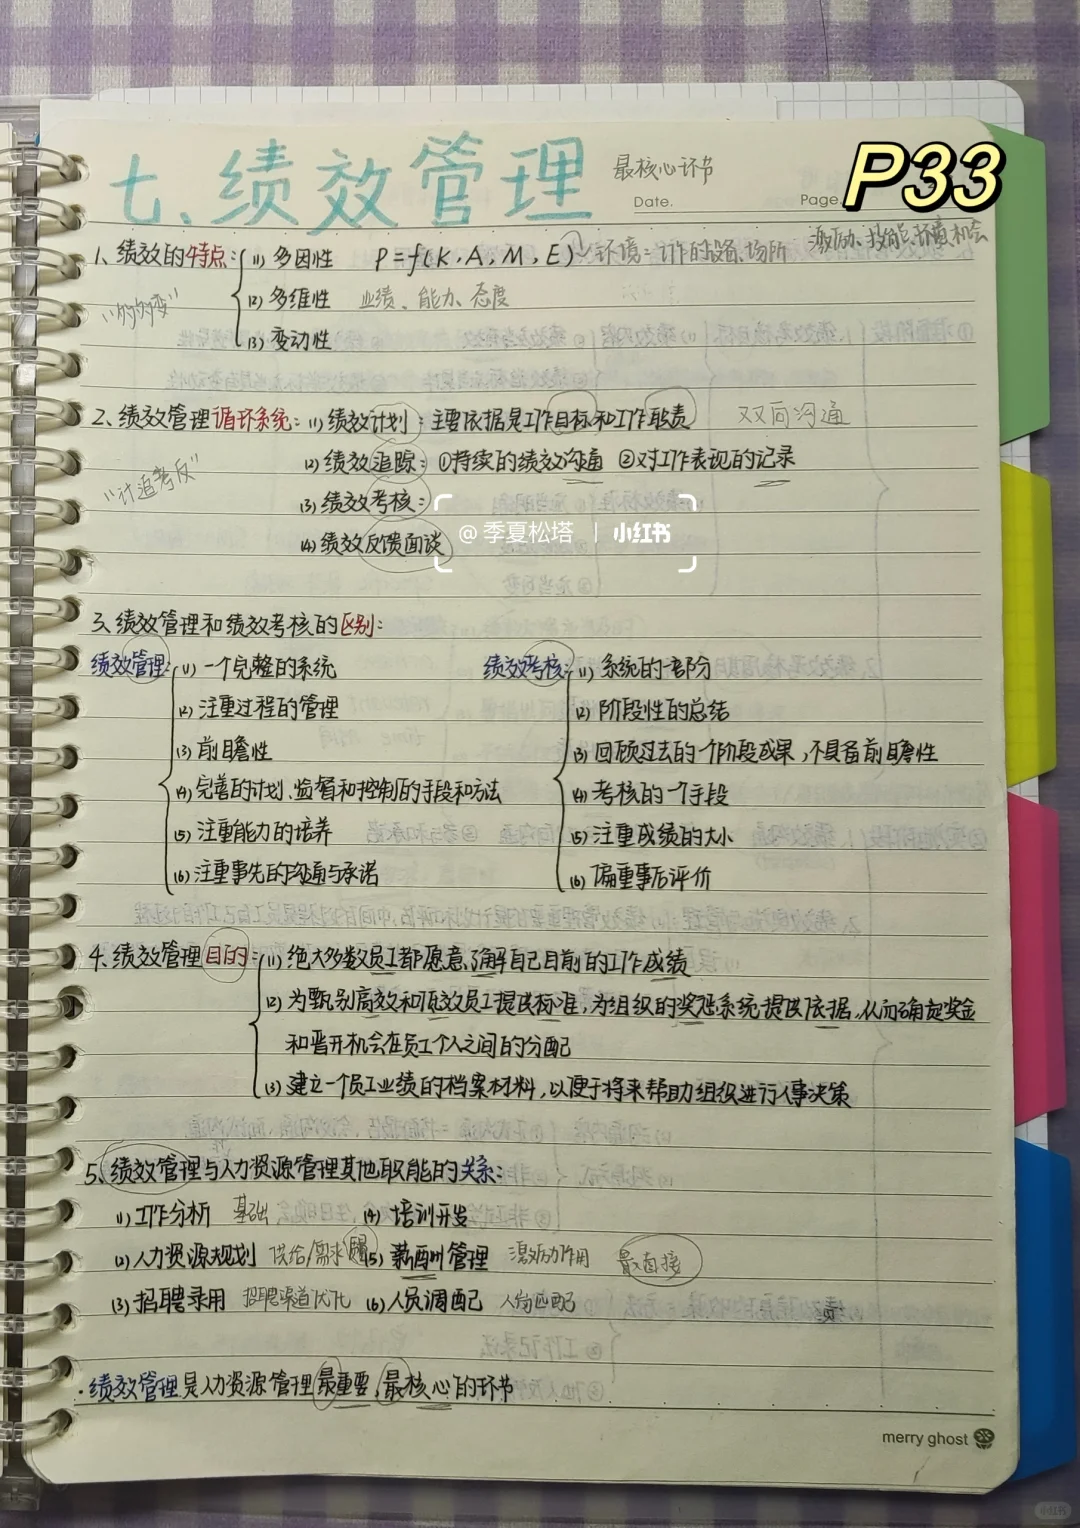 七、绩效管理 最核心环节
P33
Date.
Page.
激励、技能、环境、机会
1、绩效的特点: (1) 多因性 P=f(K,A,M,E) 环境=工作的设备、场所
"多多变" (2) 多维性 业绩、能力、态度
(3) 变动性
2、绩效管理循环系统: (1) 绩效计划: 主要依据是工作目标和工作职责 双向沟通
(2) 绩效追踪: ①持续的绩效沟通 ②对工作表现的记录
"计追考反"
(3) 绩效考核:
@季夏松塔 | 小红书
(4) 绩效反馈面谈
3、绩效管理和绩效考核的区别:
绩效管理: (1) 一个完整的系统 绩效考核: (1) 系统的一部分
(2) 注重过程的管理 (2) 阶段性的总结
(3) 前瞻性 (3) 回顾过去的一个阶段成果,不具备前瞻性
(4) 完善的计划、监督和控制的手段和方法 (4) 考核的一个手段
(5) 注重能力的培养 (5) 注重成绩的大小
(6) 注重事先的沟通与承诺 (6) 偏重事后评价
4、绩效管理目的: (1) 绝大多数员工都愿意了解自己目前的工作成绩
(2) 为甄别高效和低效员工提供标准,为组织的奖惩系统提供依据,从而确定奖金
和晋升机会在员工个人之间的分配
(3) 建立一个员工业绩的档案材料,以便于将来帮助组织进行人事决策
5、绩效管理与人力资源管理其他职能的关系:
(1) 工作分析 基础 (4) 培训开发
(2) 人力资源规划 供给/需求 (5) 薪酬管理 激励作用 最直接
(3) 招聘录用 招聘渠道优化 (6) 人员调配 人岗匹配
·绩效管理是人力资源管理最重要、最核心的环节
merry ghost
小红书